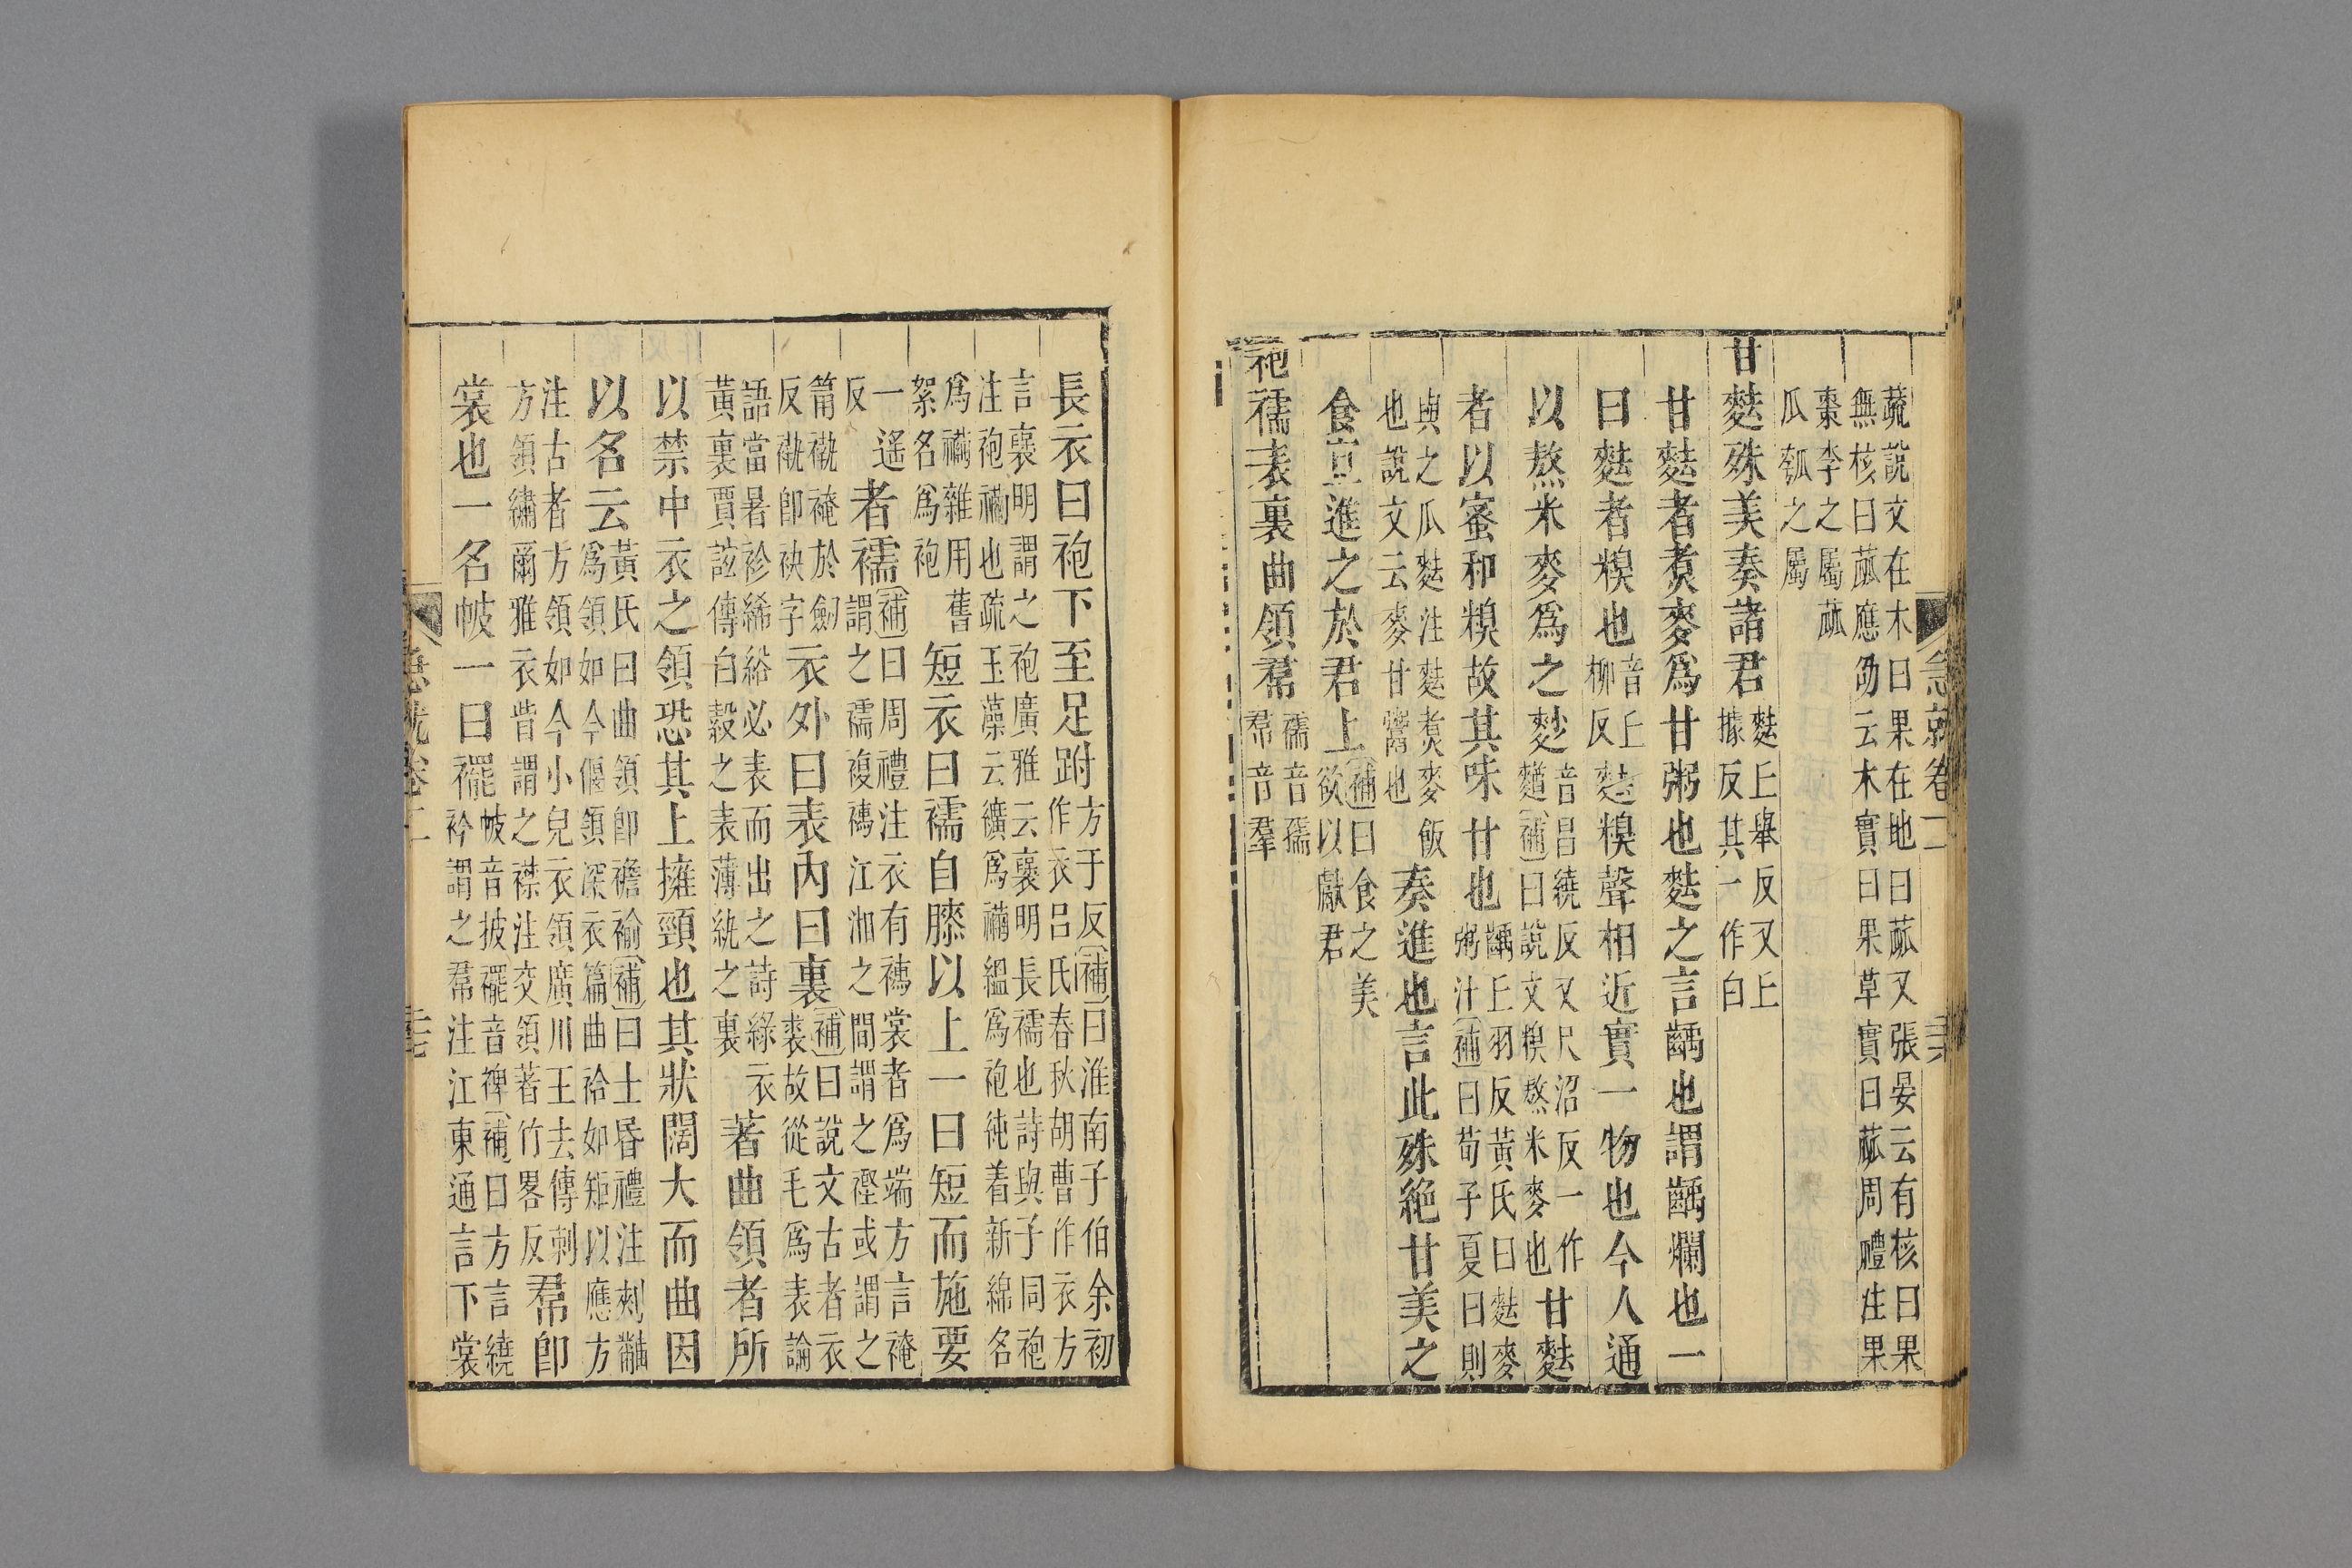 蓏說文在木曰果在地曰蓏又張晏云有核曰果
無核曰蓏應劭云木實曰果草實曰蓏周禮注果
棗李之屬蓏
瓜瓠之屬
甘麮殊美奏諸君
麮丘舉反又丘
據反其一作白
甘麮者煑麥爲甘粥也麮之言齲也謂齲爛也一
曰麮者糗也
音丘
柳反
麮糗聲相近實一物也今人通
以熬米麥爲之麨
音昌繞反又尺沼反一作
䴰補曰說文糗熬米麥也
甘麮
者以蜜和糗故其味甘也
齲丘羽反黃氏曰麮麥
粥汁補曰荀子夏曰則
與之瓜麮注麮煑麥飯
也說文云麥甘鬻也
奏進也言此殊絶甘美之
食宜進之於君上
補曰食之美
欲以獻君
袍襦表裏曲領帬
襦音孺
帬音羣
急就卷二
長衣曰袍下至足跗
方于反補曰淮南子伯余初
作衣呂氏春秋胡曹作衣方
言褒明謂之袍廣雅云褒明長襦也詩與子同袍
注袍襺也疏玉藻云纊爲襺縕爲袍純着新綿名
爲襺雜用舊
絮名爲袍
短衣曰襦自膝以上一曰短而施要
一遙
反
者襦
補曰周禮注衣有襦裳者爲端方言䘸
謂之襦複襦江湘之間謂之䙆或謂之
筩褹䘸於劒
反褹卽袂字
衣外曰表內曰裏
補曰說文古者衣
裘故從毛爲表論
語當暑袗絺綌必表而出之詩綠衣
黃裏賈誼傳白縠之表薄紈之裏
著曲領者所
以禁中衣之領恐其上擁頸也其狀闊大而曲因
以名云
黃氏曰曲領卽襜褕補曰士昏禮注刺黼
爲領如今偃領深衣篇曲袷如矩以應方
注古者方領如今小兒衣領廣川王去傳刺
方領繡爾雅衣眥謂之襟注交領著竹畧反
帬卽
裳也一名帔一曰襬
帔音披襬音碑補曰方言繞
衿謂之帬注江東通言下裳
急就卷二
二十七